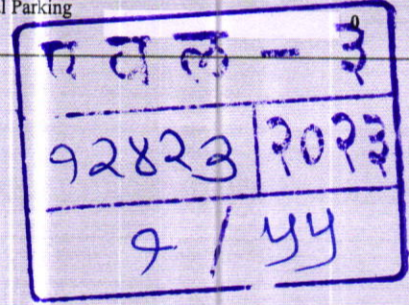 l Parking
0
प व ल - ३
१२४२३ | २०२३
१ / ५५